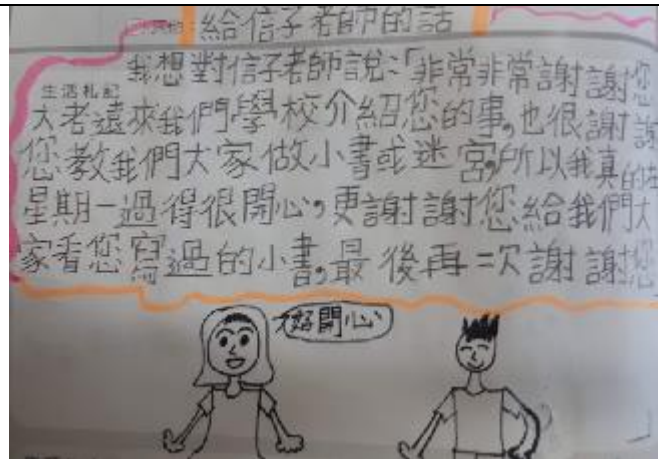 給信子老師的話
我想對信子老師說:「非常非常謝謝您
生活札記
大老遠來我們學校介紹您的事,也很謝謝
您教我們大家做小書或迷宮,所以我真的在
星期一過得很開心,更謝謝您給我們大
家看您寫過的小書,最後再一次謝謝您
好開心